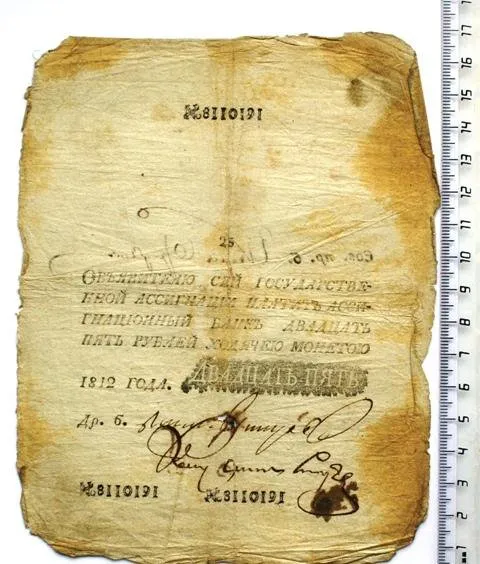 №8110191
25
Сов. пр. б.
ОБЪЯВИТЕЛЮ СЕЙ ГОСУДАРСТВЕ-
ННОЙ АССИГНАЦІИ ПЛАТИТЪ АССИ-
ГНАЦІОННЫЙ БАНКЪ ДВАДЦАТЬ
ПЯТЬ РУБЛЕЙ ХОДЯЧЕЮ МОНЕТОЮ
1812 ГОДА. ДВАДЦАТЬ ПЯТЬ
др. б.
№8110191 №8110191
17
16
15
14
13
12
11
10
9
8
7
6
5
4
3
2
1